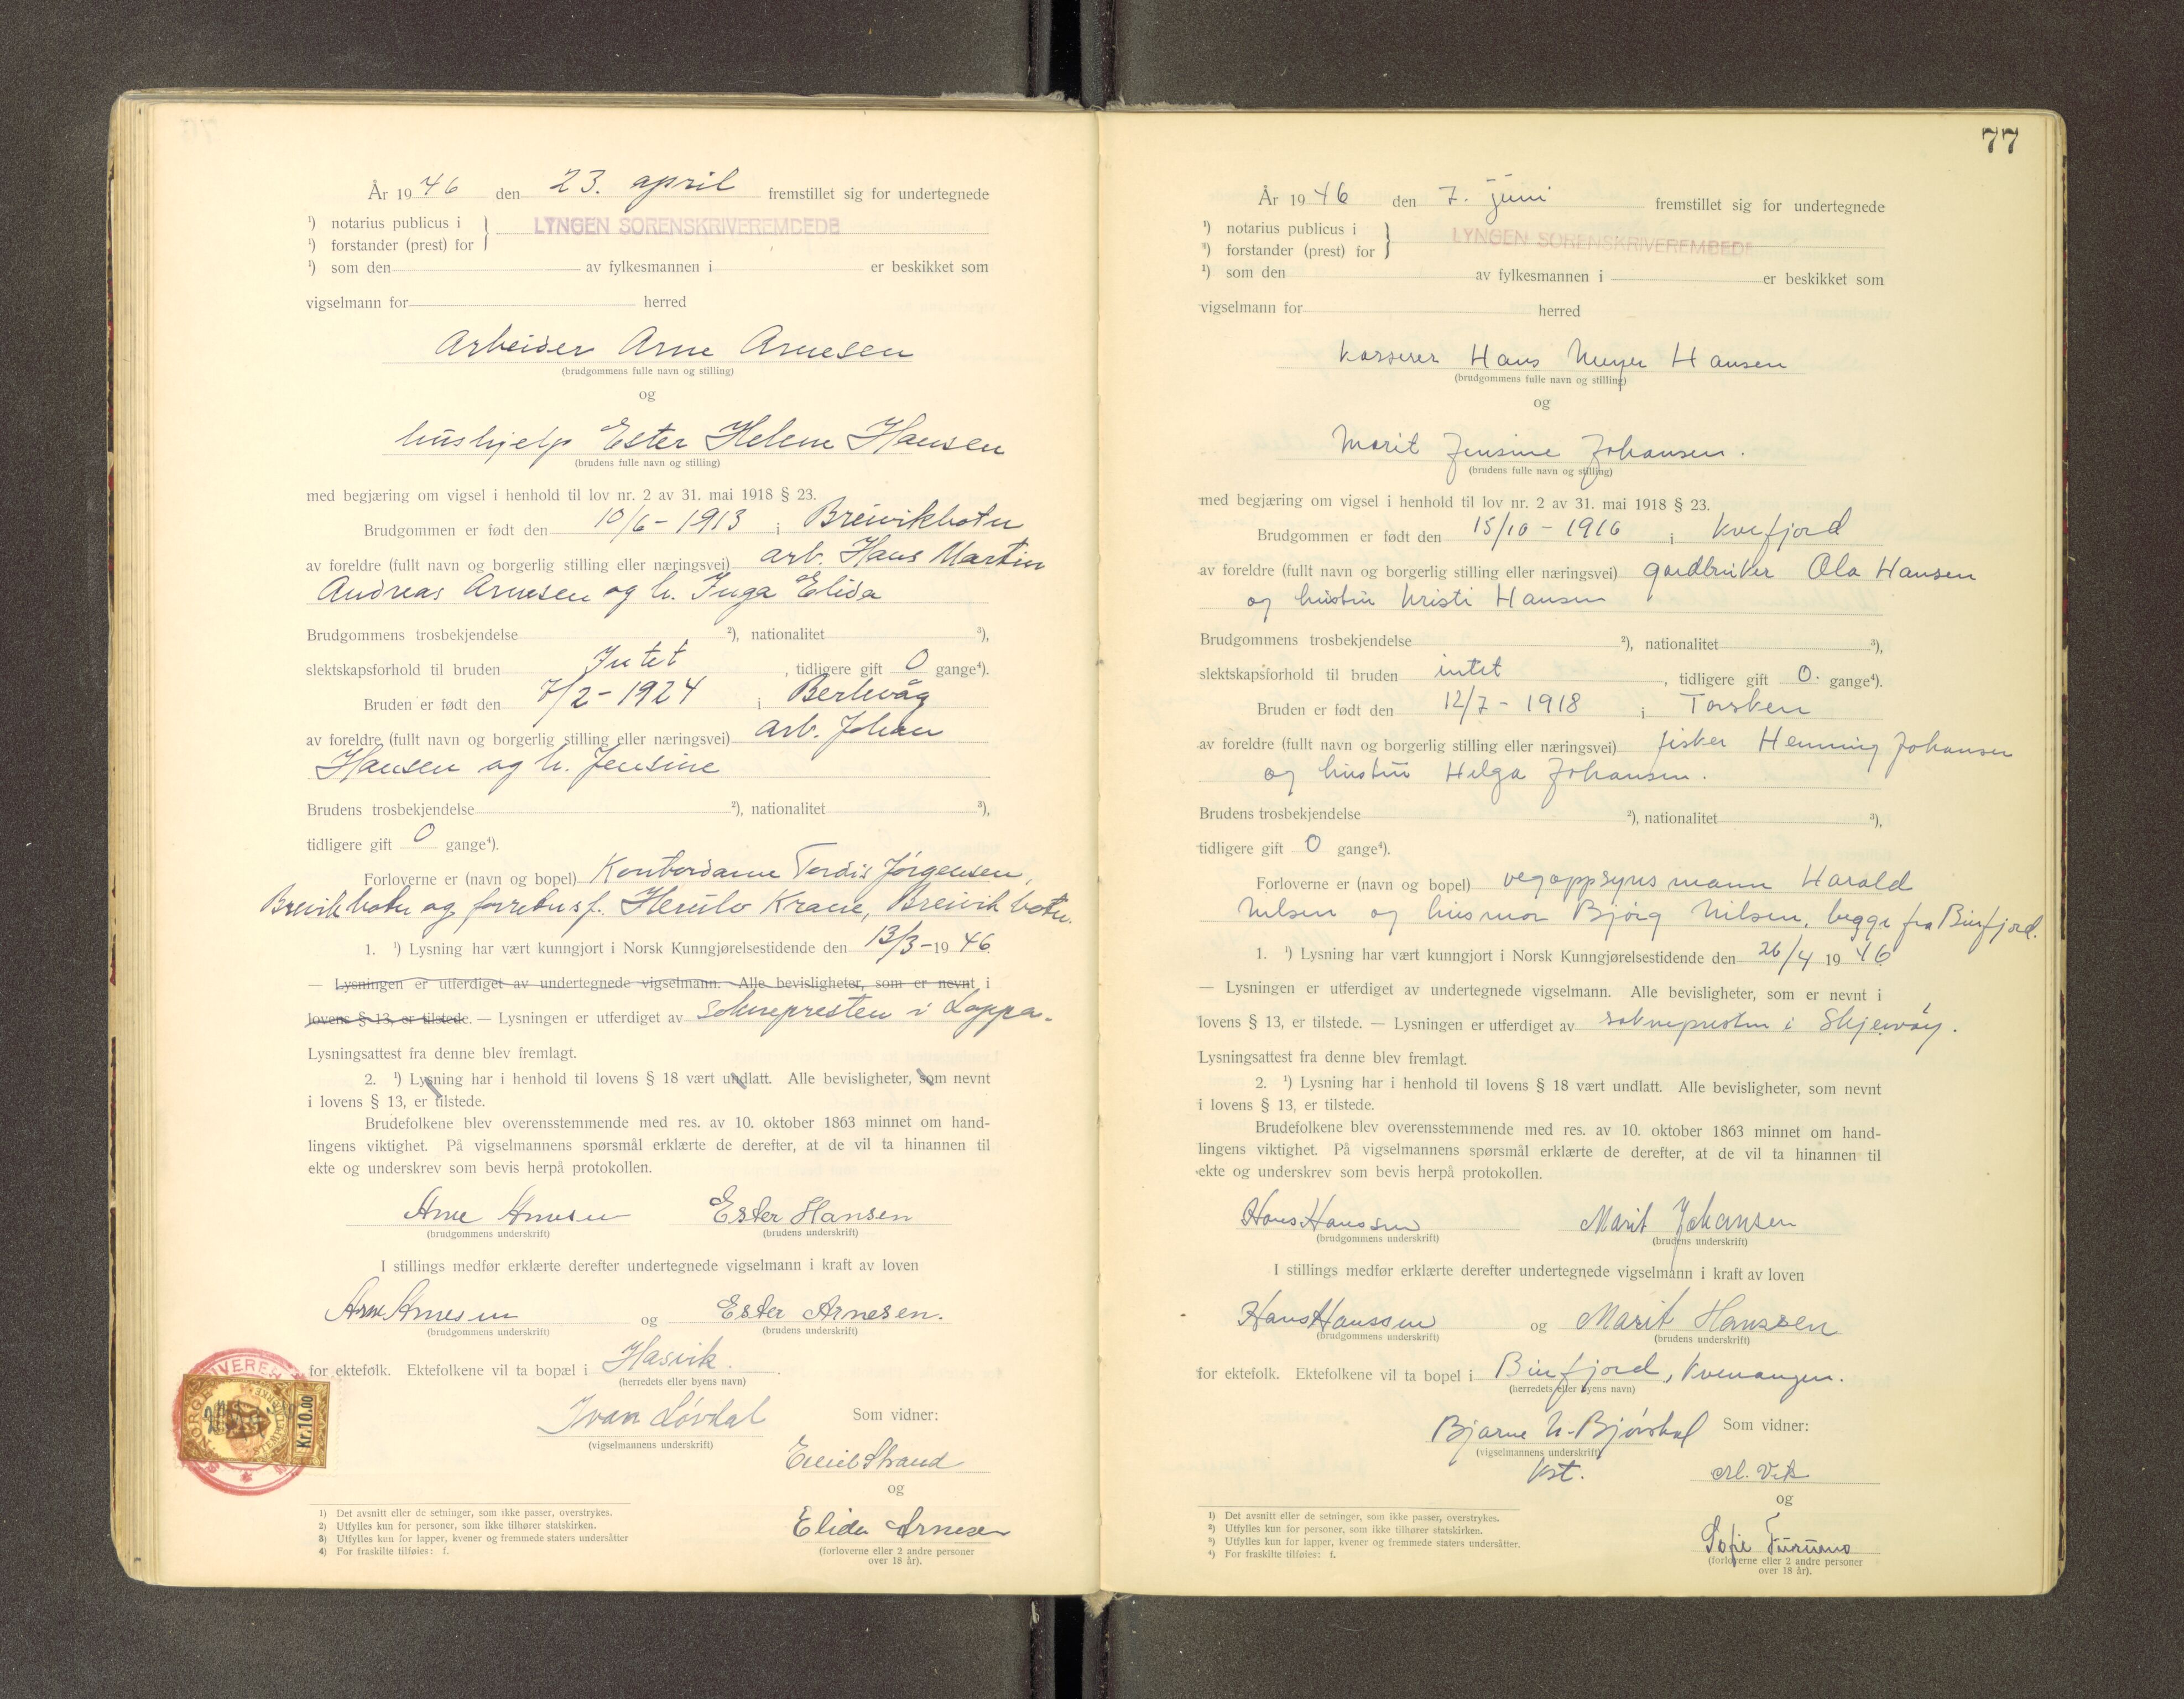 År 1946 den 23. april fremstillet sig for undertegnede
¹) notarius publicus i
¹) forstander (prest) for
LYNGEN SORENSKRIVEREMBEDE
¹) som den av fylkesmannen i er beskikket som
vigselmann for herred
Arbeider Arne Arnesen
(brudgommens fulle navn og stilling)
og
hushjelp Ester Helene Hansen
(brudens fulle navn og stilling)
med begjæring om vigsel i henhold til lov nr. 2 av 31. mai 1918 § 23.
Brudgommen er født den 10/6 - 1913 i Breivikbotn
av foreldre (fullt navn og borgerlig stilling eller næringsvei) arb. Hans Martin
Andreas Arnesen og h. Inga Elida
Brudgommens trosbekjendelse ²), nationalitet ³),
slektskapsforhold til bruden Intet, tidligere gift 0 gange⁴).
Bruden er født den 7/2 - 1924 i Berlevåg
av foreldre (fullt navn og borgerlig stilling eller næringsvei) arb. Johan
Hansen og h. Jensine
Brudens trosbekjendelse ²), nationalitet ³),
tidligere gift 0 gange⁴).
Forloverne er (navn og bopel) Kontordame Tordis Jørgensen,
Breivikbotn og forretnsf. Herulv Krane, Breivikbotn.
1. ¹) Lysning har vært kunngjort i Norsk Kunngjørelsestidende den 13/3 - 1946.
— Lysningen er utferdiget av undertegnede vigselmann. Alle bevisligheter, som er nevnt i
lovens § 13, er tilstede. — Lysningen er utferdiget av soknepresten i Loppa.
Lysningsattest fra denne blev fremlagt.
2. ¹) Lysning har i henhold til lovens § 18 vært undlatt. Alle bevisligheter, som nevnt
i lovens § 13, er tilstede.
Brudefolkene blev overensstemmende med res. av 10. oktober 1863 minnet om hand-
lingens viktighet. På vigselmannens spørsmål erklærte de derefter, at de vil ta hinannen til
ekte og underskrev som bevis herpå protokollen.
Arne Arnesen Ester Hansen
(brudgommens underskrift) (brudens underskrift)
I stillings medfør erklærte derefter undertegnede vigselmann i kraft av loven
Arne Arnesen og Ester Arnesen.
(brudgommens underskrift) (brudens underskrift)
for ektefolk. Ektefolkene vil ta bopæl i Hasvik.
(herredets eller byens navn)
Kr.10.00
Ivar Løvdal Som vidner:
(vigselmannens underskrift)
Emil Strand
og
Elida Arnesen
(forloverne eller 2 andre personer
over 18 år).
1) Det avsnitt eller de setninger, som ikke passer, overstrykes.
2) Utfylles kun for personer, som ikke tilhører statskirken.
3) Utfylles kun for lapper, kvener og fremmede staters undersåtter
4) For fraskilte tilføies: f.
77
År 1946 den 7. juni fremstillet sig for undertegnede
¹) notarius publicus i
¹) forstander (prest) for
LYNGEN SORENSKRIVEREMBEDE
¹) som den av fylkesmannen i er beskikket som
vigselmann for herred
kasserer Hans Meyer Hansen
(brudgommens fulle navn og stilling)
og
Marit Jensine Johansen.
(brudens fulle navn og stilling)
med begjæring om vigsel i henhold til lov nr. 2 av 31. mai 1918 § 23.
Brudgommen er født den 15/10 - 1916 i Kvefjord
av foreldre (fullt navn og borgerlig stilling eller næringsvei) gardbruker Ola Hansen
og hustru Kristi Hansen
Brudgommens trosbekjendelse ²), nationalitet ³),
slektskapsforhold til bruden intet, tidligere gift 0. gange⁴).
Bruden er født den 12/7 - 1918 i Torsken
av foreldre (fullt navn og borgerlig stilling eller næringsvei) fisker Henning Johansen
og hustru Helga Johansen.
Brudens trosbekjendelse ²), nationalitet ³),
tidligere gift 0 gange⁴).
Forloverne er (navn og bopel) vegoppsynsmann Harald
Nilsen og husmor Bjørg Nilsen, begge fra Burfjord.
1. ¹) Lysning har vært kunngjort i Norsk Kunngjørelsestidende den 26/4 1946
— Lysningen er utferdiget av undertegnede vigselmann. Alle bevisligheter, som er nevnt i
lovens § 13, er tilstede. — Lysningen er utferdiget av soknepresten i Skjervøy.
Lysningsattest fra denne blev fremlagt.
2. ¹) Lysning har i henhold til lovens § 18 vært undlatt. Alle bevisligheter, som nevnt
i lovens § 13, er tilstede.
Brudefolkene blev overensstemmende med res. av 10. oktober 1863 minnet om hand-
lingens viktighet. På vigselmannens spørsmål erklærte de derefter, at de vil ta hinannen til
ekte og underskrev som bevis herpå protokollen.
Hans Hanssen Marit Johansen
(brudgommens underskrift) (brudens underskrift)
I stillings medfør erklærte derefter undertegnede vigselmann i kraft av loven
Hans Hanssen og Marit Hanssen
(brudgommens underskrift) (brudens underskrift)
for ektefolk. Ektefolkene vil ta bopel i Burfjord, Kvenangen.
(herredets eller byens navn)
Bjarne N. Som vidner:
(vigselmannens underskrift)
kst. Vik
og
Sofie Furumo
(forloverne eller 2 andre personer
over 18 år).
¹) Det avsnitt eller de setninger, som ikke passer, overstrykes.
²) Utfylles kun for personer, som ikke tilhører statskirken.
³) Utfylles kun for lapper, kvener og fremmede staters undersåtter.
⁴) For fraskilte tilføies: f.